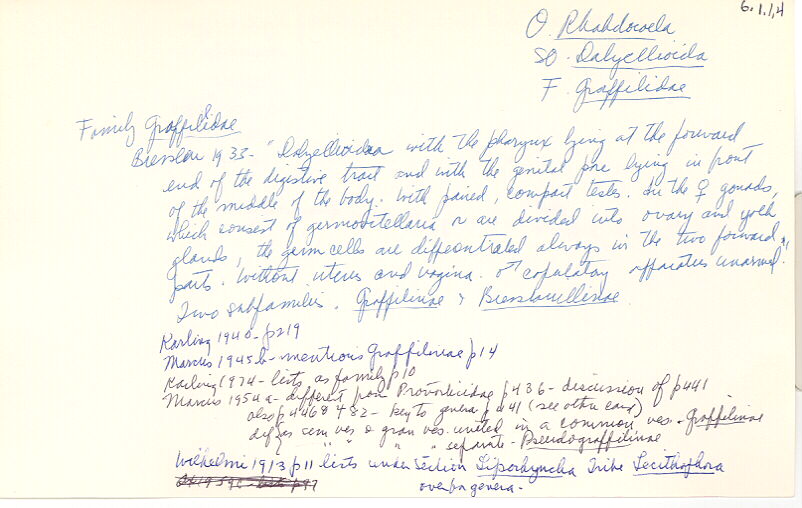 6.1.1,4
O. Rhabdocoela
SO. Dalyellioida
F. Graffilidae
Family Graffilidae
Bresslau 1933 - "Dalyellioidea with the pharynx lying at the forward
end of the digestive tract and with the genital pore lying in front
of the middle of the body. With paired, compact testes. In the ♀ gonads,
which consist of germovitellaria or are divided into ovary and yolk
glands, the germ cells are differentiated always in the two forward
parts. Without uterus and vagina. ♂ copulatory apparatus unarmed."
Two subfamilies. Graffilinae & Bresslauillinae.
Karling 1940 - p219
Marcus 1945b - mentions Graffilinae p14
Karling 1974 - lists as family p10
Marcus 1954a - different from Provorticidae p436 - discussion of p441
also p446 & 482 - key to genera p441 (see other card)
sem ves & gran ves. united in a common ves. - Graffilinae
" " " " separate - Pseudograffilinae
Wilhelmi 1913 p11 lists under Section Liporhyncha Tribe Lecithophora
over for genera -